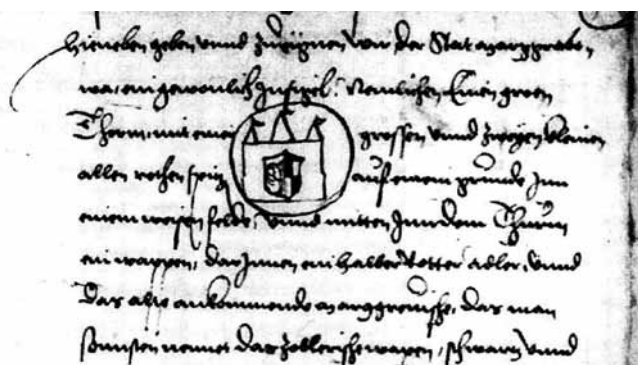 Hieneben geben vnnd zueignen wir der Stat Marggrabo,
wa, ein gewonlich Insigel: Nemlichen Einen groen
Thorm, mit einer grossen vnnd zweyen kleinen
allen rothen spitz auf einem grunde Inn
einem weissen felde, vnnd mitten Inn dem Thurm
ein wappen, dar Innen ein halber Rotter adler, vnnd
das alte ankommende Marggreuische, das man
sonnsten nennet das Zollerische wapen, schwartz vnnd